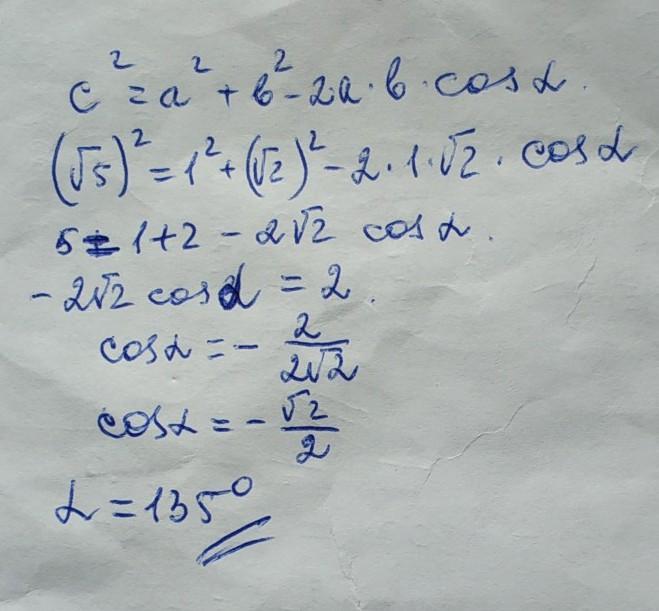 c² = a² + b² - 2a · b · cos α.
(√5)² = 1² + (√2)² - 2 · 1 · √2 · cos α
5 = 1 + 2 - 2√2 cos α.
- 2√2 cos α = 2.
cos α = - 2/(2√2)
cos α = - √2/2
α = 135°